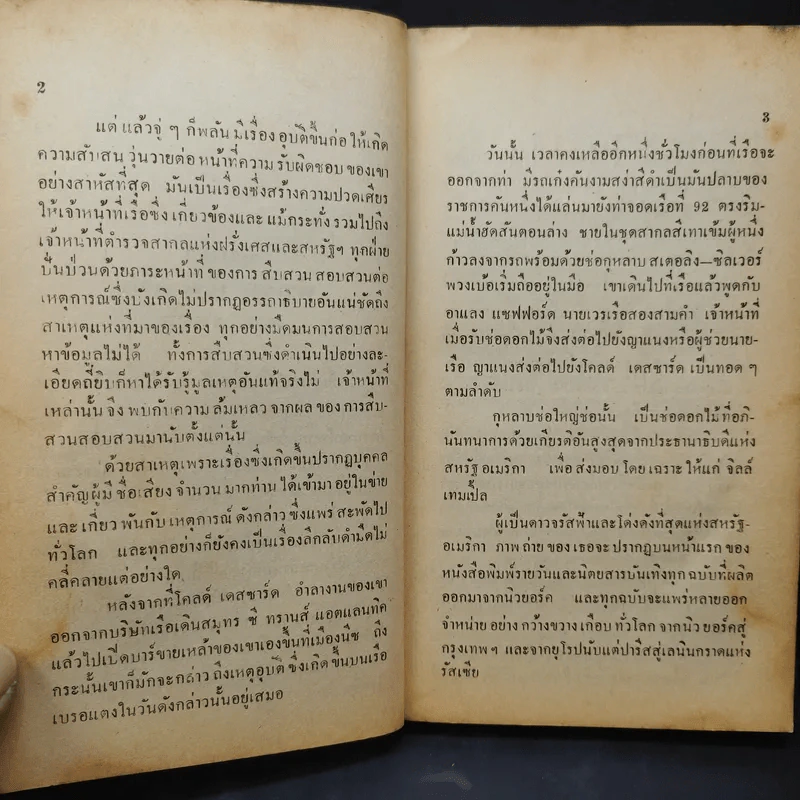 2
แต่ แล้วจู่ ๆ ก็พลัน มีเรื่อง อุบัติขึ้นก่อ ให้เกิด
ความสับสน วุ่นวายต่อ หน้าที่ความ รับผิดชอบ ของเขา
อย่างสาหัสที่สุด มันเป็นเรื่องซึ่งสร้างความปวดเศียร
ให้เจ้าหน้าที่เรือซึ่ง เกี่ยวข้องและ แม้กระทั่ง รวมไปถึง
เจ้าหน้าที่ตำรวจสากลแห่งฝรั่งเศสและสหรัฐฯ ทุกฝ่าย
ปั่นป่วนด้วยภาระหน้าที่ ของการ สืบสวน สอบสวนต่อ
เหตุการณ์ซึ่งบังเกิดไม่ปรากฏอรรถาธิบายอันแน่ชัดถึง
สาเหตุแห่งที่มาของเรื่อง ทุกอย่างมืดมนการสอบสวน
หาข้อมูลไม่ได้ ทั้งการสืบสวนซึ่งดำเนินไปอย่างละ-
เอียดถี่ยิบก็หาได้รับรู้มูลเหตุอันแท้จริงไม่ เจ้าหน้าที่
เหล่านั้น จึง พบกับความ ล้มเหลว จากผล ของ การสืบ-
สวนสอบสวนมานับตั้งแต่นั้น
ด้วยสาเหตุเพราะเรื่องซึ่งเกิดขึ้นปรากฏบุคคล
สำคัญผู้มี ชื่อเสียง จำนวน มากท่าน ได้เข้ามา อยู่ในข่าย
และ เกี่ยว พันกับ เหตุการณ์ ดังกล่าว ซึ่งแพร่ สะพัดไป
ทั่วโลก และทุกอย่างก็ยังคงเป็นเรื่องลึกลับดำมืดไม่
คลี่คลายแต่อย่างใด
หลังจากที่โคลด์ เดสซาร์ด อำลางานของเขา
ออกจากบริษัทเรือเดินสมุทร ซี ทรานส์ แอตแลนทิค
แล้วไปเปิดบาร์ขายเหล้าของเขาเองขึ้นที่เมืองนีซ ถึง
กระนั้นเขาก็มักจะกล่าว ถึงเหตุอุบัติ ซึ่งเกิด ขึ้นบนเรือ
เบรอแตงในวันดังกล่าวนั้นอยู่เสมอ
3
วันนั้น เวลาคงเหลืออีกหนึ่งชั่วโมงก่อนที่เรือจะ
ออกจากท่า มีรถเก๋งคันงามสง่าสีดำเป็นมันปลาบของ
ราชการคันหนึ่งได้แล่นมายังท่าจอดเรือที่ 92 ตรงริม-
แม่น้ำฮัดสันตอนล่าง ชายในชุดสากลสีเทาเข้มผู้หนึ่ง
ก้าวลงจากรถพร้อมด้วยช่อกุหลาบ สเตอลิง—ซิลเวอร์
พวงเบ้อเริ่มถืออยู่ในมือ เขาเดินไปที่เรือแล้วพูดกับ
อาแลง แซฟฟอร์ด นายเวรเรือสองสามคำ เจ้าหน้าที่
เมื่อรับช่อดอกไม้จึงส่งต่อไปยังญาแนงหรือผู้ช่วยนาย-
เรือ ญาแนงส่งต่อไปยังโคลด์ เดสซาร์ด เป็นทอด ๆ
ตามลำดับ
กุหลาบช่อใหญ่ช่อนั้น เป็นช่อดอกไม้ ที่อภิ-
นันทนาการด้วยเกียรติอันสูงสุดจากประธานาธิบดีแห่ง
สหรัฐ อเมริกา เพื่อ ส่งมอบ โดย เฉราะ ให้แก่ จิลล์
เทมเปิ้ล
ผู้เป็นดาวจรัสฟ้าและโด่งดังที่สุดแห่งสหรัฐ-
อเมริกา ภาพ ถ่าย ของ เธอจะ ปรากฏบนหน้าแรก ของ
หนังสือพิมพ์รายวันและนิตยสารบันเทิงทุก ฉบับที่ผลิต
ออกมาจากนิวยอร์ค และทุกฉบับจะแพร่หลายออก
จำหน่าย อย่าง กว้างขวาง เกือบ ทั่วโลก จากนิว ยอร์คสู่
กรุงเทพฯ และจากยุโรปนับแต่ปารีสสู่เลนินกราดแห่ง
รัสเซีย